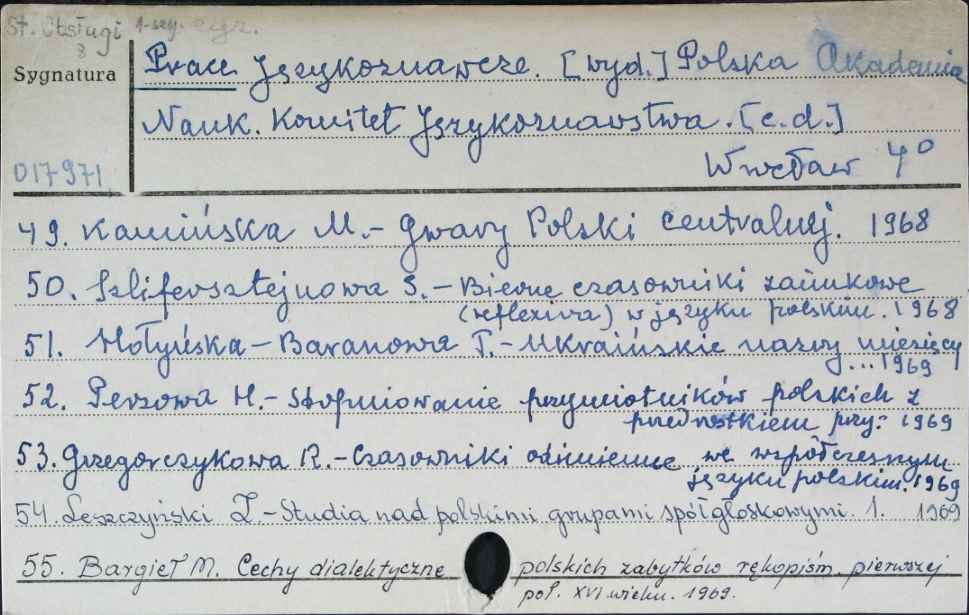 St. Obsługi 1-szy. egz.
8
Sygnatura
Prace Językoznawcze. [wyd.] Polska Akademia
Nauk. Komitet Językoznawstwa. [c.d.]
Wrocław 4°
D17971
49. Kamińska M.- Gwary Polski centralnej. 1968
50. Szlifersztejnowa S.- Bierne czasowniki zaimkowe
(reflexiva) w języku polskim. 1968
51. Hołyńska-Baranowa T.- Ukraińskie nazwy miesięcy
...1969
52. Perzowa H.- Stopniowanie przymiotników polskich z
przedrostkiem przy: 1969
53. Grzegorczykowa R.- Czasowniki odimienne we współczesnym
języku polskim. 1969
54. Leszczyński Z.- Studia nad polskimi grupami spółgłoskowymi. 1. 1969
55. Bargieł M. Cechy dialektyczne polskich zabytków rękopiśm. pierwszej
poł. XVI wieku. 1969.